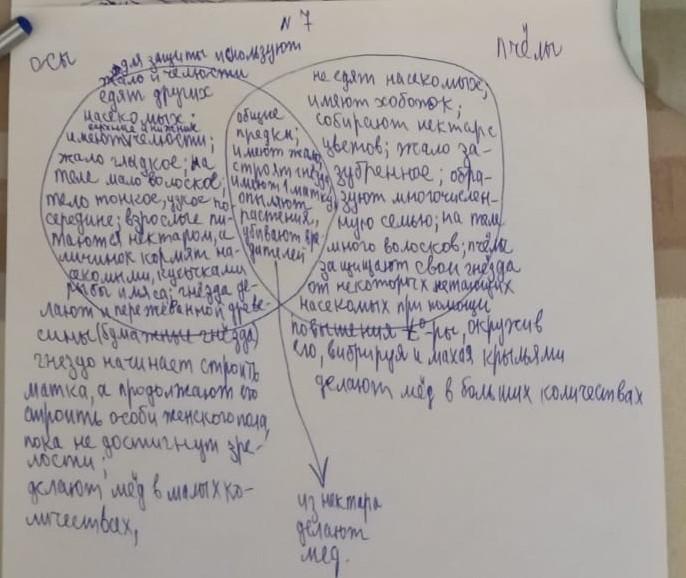 N 7
осы
для защиты используют
жало и челюсти
едят других
насекомых;
верхние и нижние
имеют челюсти;
жало гладкое; на
теле мало волосков;
тело тонкое, узкое по-
середине; взрослые пи-
таются нектаром, а
личинок кормят на-
секомыми, кусочками
рыбы и мяса; гнёзда де-
лают и пережёванной древе-
сины (бумажные гнёзда)
гнездо начинает строить
матка, а продолжают его
строить особи женского пола,
пока не достигнут зре-
лости;
делают мёд в малых ко-
личествах,
общие
предки;
имеют жало
строят гнёзда
имеют 1 матку
опыляют
растения,
убивают вре-
дителей
из нектара
делают
мёд.
пчёлы
не едят насекомых;
имеют хоботок;
собирают нектар с
цветов; жало за-
зубренное; обра-
зуют многочислен-
ную семью; на теле
много волосков; пчёлы
защищают свои гнёзда
от некоторых
насекомых при помощи
повышения t°-ры, окружив
его, вибрируя и махая крыльями
делают мёд в больших количествах